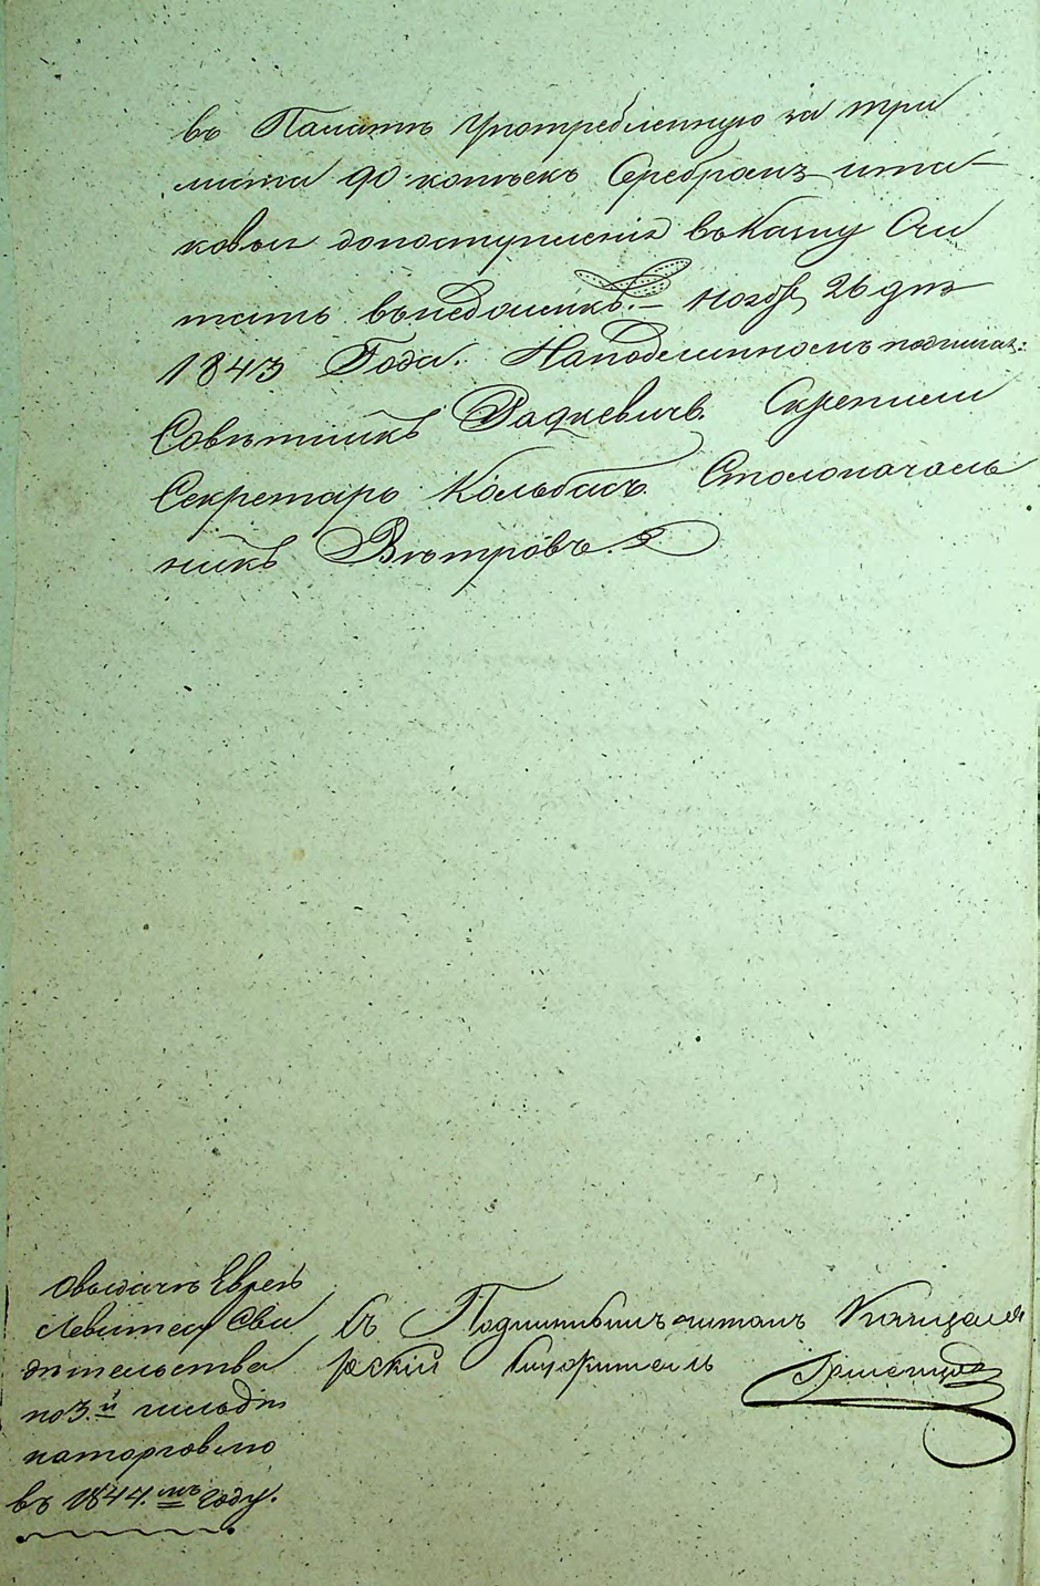 въ Палатѣ Употребленную за три
листа 90 копѣекъ Серебромъ и та-
ковыя допоступленія въ Казну Счи
тать въ недоимкѣ. — Ноября 26 дня
1843 Года. На подлинномъ подписал:
Совѣтникъ Радкевичъ Скрепили
Секретарь Кольбасъ Столоначаль
никъ Вѣтровъ.
Овыдачѣ Еврею
Левитеву Сви
дѣтельства
по 3.й гильдіи
на торговлю
въ 1844.мъ году.
Съ Подлиннымъ читалъ Канцеля
рскій Служитель